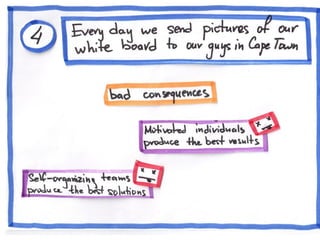 4
Every day we send pictures of our
white board to our guys in Cape Town
bad consequences
Motivated individuals
produce the best results
Self-organizing teams
produce the best solutions